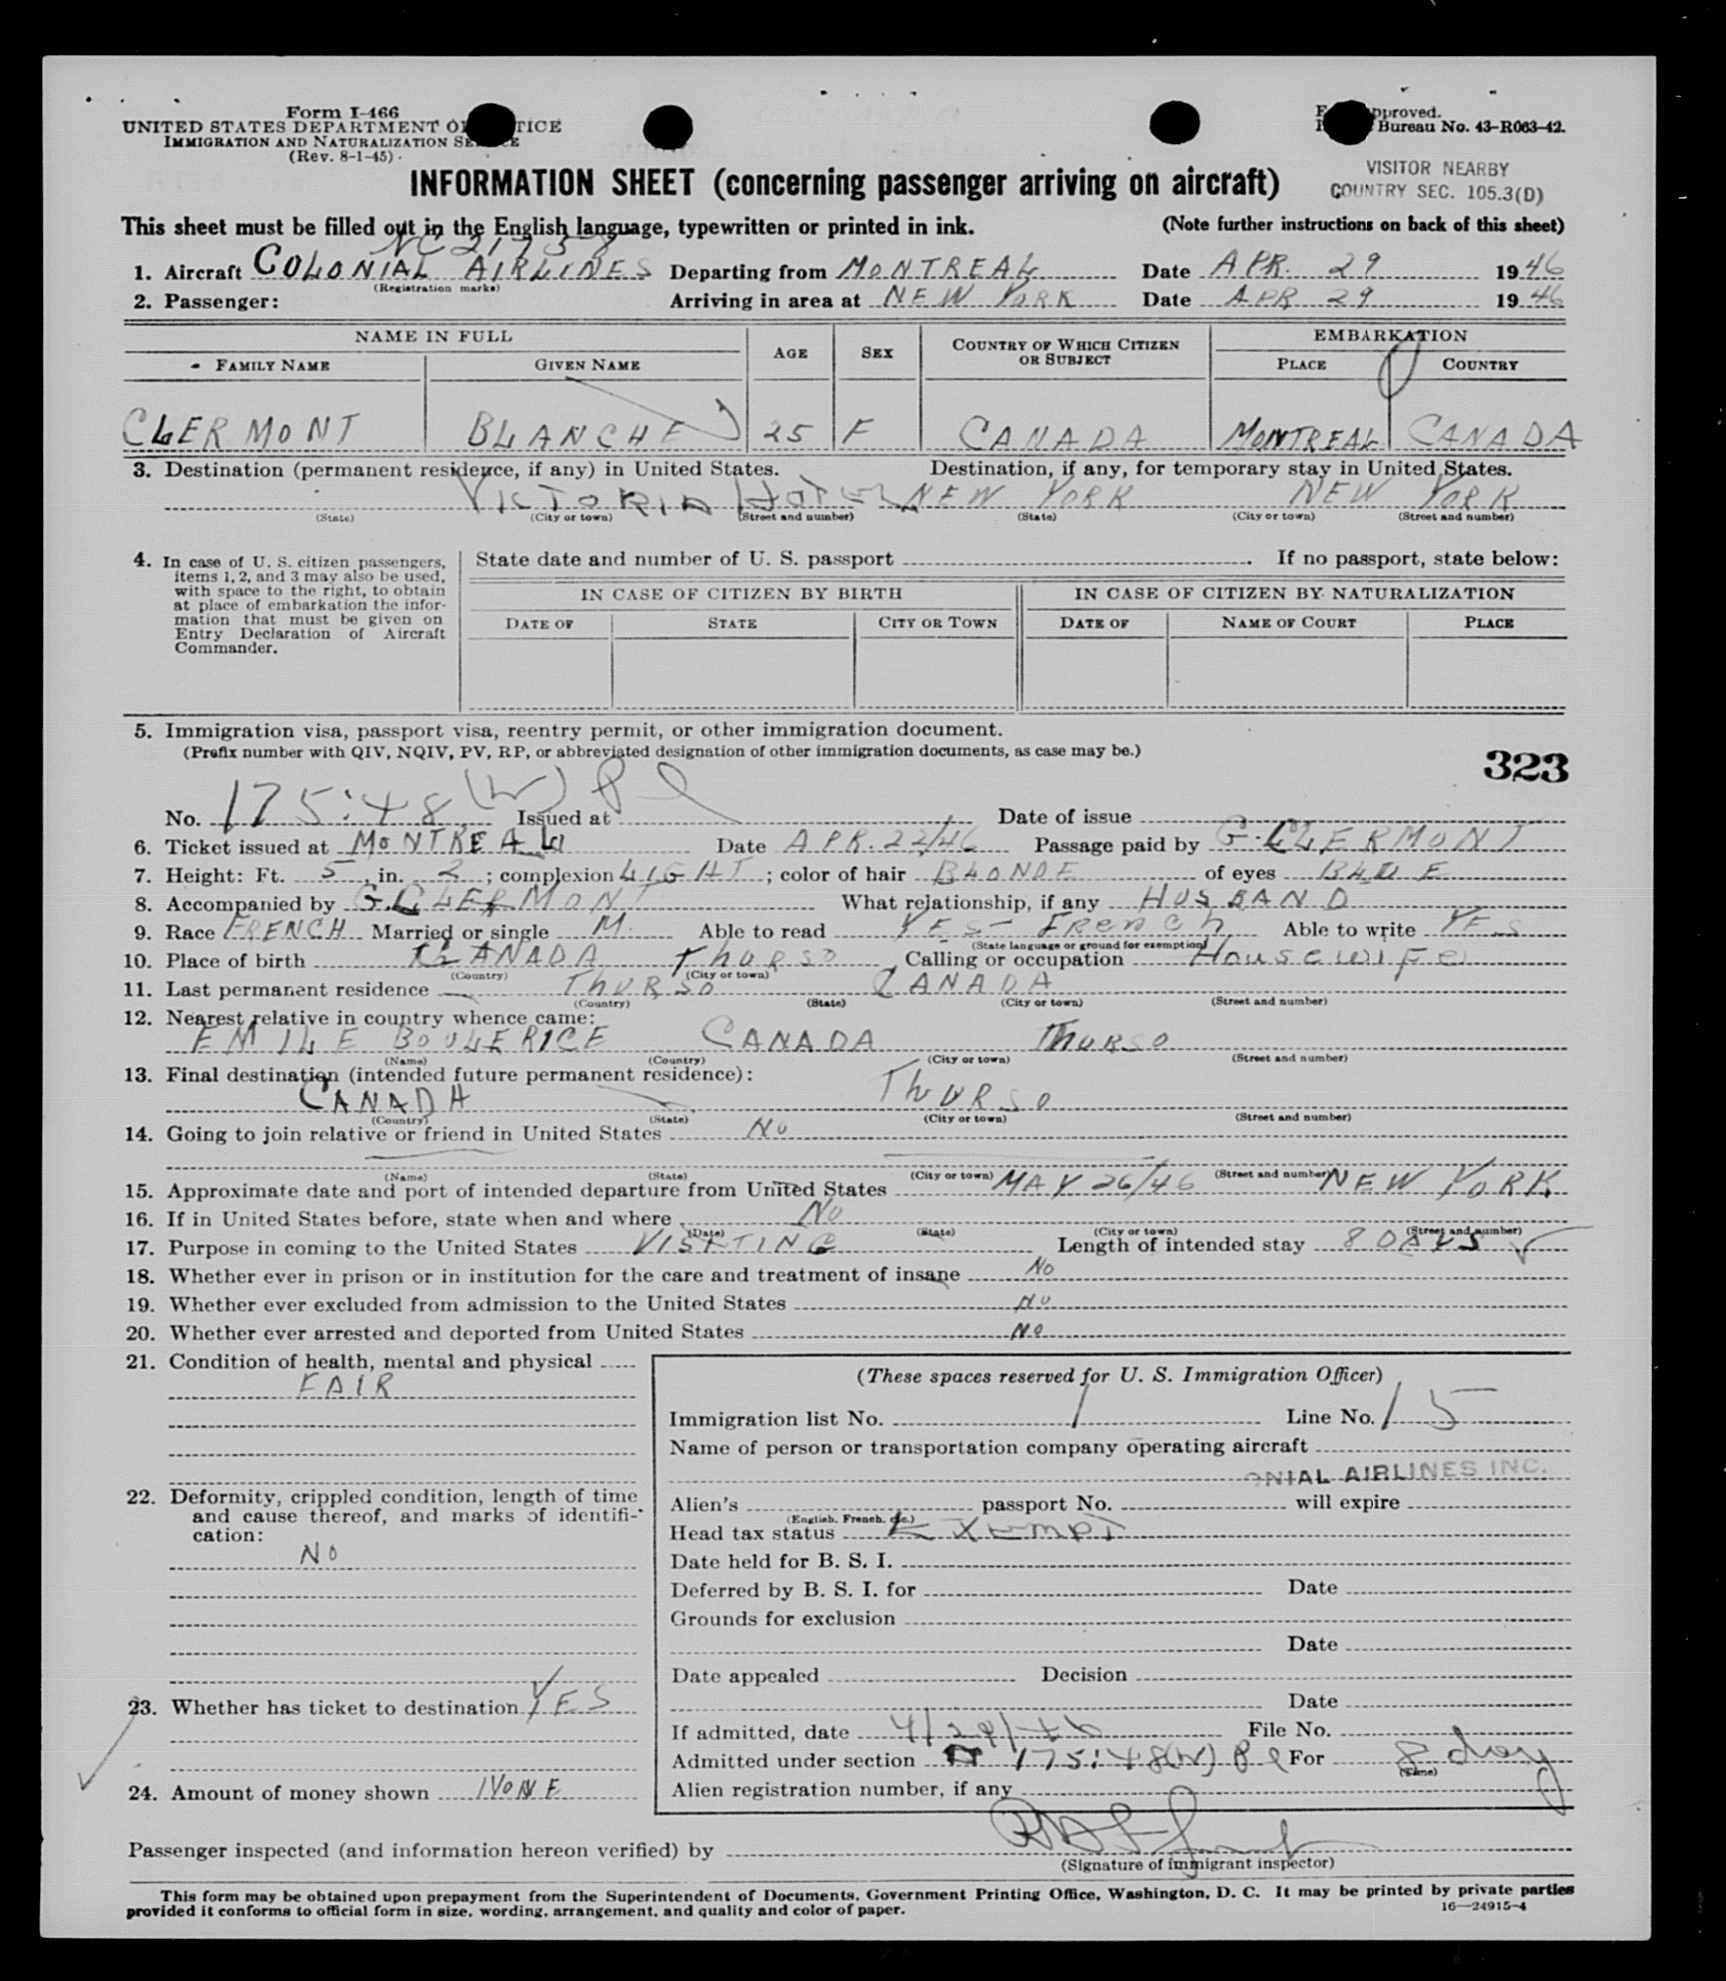 Form I-466
UNITED STATES DEPARTMENT OF JUSTICE
IMMIGRATION AND NATURALIZATION SERVICE
(Rev. 8-1-45)
pproved.
Bureau No. 43-R063-42.
VISITOR NEARBY
COUNTRY SEC. 105.3(D)
INFORMATION SHEET (concerning passenger arriving on aircraft)
This sheet must be filled out in the English language, typewritten or printed in ink. (Note further instructions on back of this sheet)
NC 21758
1. Aircraft COLONIAL AIRLINES Departing from MONTREAL Date APR. 29 1946
(Registration marks)
2. Passenger: Arriving in area at NEW YORK Date APR 29 1946
NAME IN FULL AGE SEX COUNTRY OF WHICH CITIZEN OR SUBJECT EMBARKATION
FAMILY NAME GIVEN NAME PLACE COUNTRY
CLERMONT BLANCHE 25 F CANADA MONTREAL CANADA
3. Destination (permanent residence, if any) in United States. Destination, if any, for temporary stay in United States.
VICTORIA HOTEL NEW YORK NEW YORK
(State) (City or town) (Street and number) (State) (City or town) (Street and number)
4. In case of U. S. citizen passengers, items 1, 2, and 3 may also be used, with space to the right, to obtain at place of embarkation the information that must be given on Entry Declaration of Aircraft Commander.
State date and number of U. S. passport . If no passport, state below:
IN CASE OF CITIZEN BY BIRTH IN CASE OF CITIZEN BY NATURALIZATION
DATE OF STATE CITY OR TOWN DATE OF NAME OF COURT PLACE
5. Immigration visa, passport visa, reentry permit, or other immigration document.
(Prefix number with QIV, NQIV, PV, RP, or abbreviated designation of other immigration documents, as case may be.)
323
No. 175:48 (W) Pl Issued at Date of issue
6. Ticket issued at MONTREAL Date APR. 22/46 Passage paid by G. CLERMONT
7. Height: Ft. 5, in. 2; complexion LIGHT; color of hair BLONDE of eyes BLUE
8. Accompanied by G. CLERMONT What relationship, if any HUSBAND
9. Race FRENCH Married or single M. Able to read YES - FRENCH Able to write YES
(State language or ground for exemption)
10. Place of birth CANADA THURSO Calling or occupation HOUSEWIFE
(Country) (City or town)
11. Last permanent residence THURSO CANADA
(Country) (State) (City or town) (Street and number)
12. Nearest relative in country whence came:
EMILE BOULERICE CANADA THURSO
(Name) (Country) (City or town) (Street and number)
13. Final destination (intended future permanent residence):
CANADA THURSO
(Country) (State) (City or town) (Street and number)
14. Going to join relative or friend in United States NO
(Name) (State) (City or town) (Street and number)
15. Approximate date and port of intended departure from United States MAY 26/46 NEW YORK
16. If in United States before, state when and where NO
(Date) (State) (City or town) (Street and number)
17. Purpose in coming to the United States VISITING Length of intended stay 8 DAYS
18. Whether ever in prison or in institution for the care and treatment of insane NO
19. Whether ever excluded from admission to the United States NO
20. Whether ever arrested and deported from United States NO
21. Condition of health, mental and physical
FAIR
22. Deformity, crippled condition, length of time and cause thereof, and marks of identification:
NO
23. Whether has ticket to destination YES
24. Amount of money shown NONE
(These spaces reserved for U. S. Immigration Officer)
Immigration list No. 1 Line No. 15
Name of person or transportation company operating aircraft
ONIAL AIRLINES INC.
Alien's passport No. will expire
(English, French, etc.)
Head tax status EXEMPT
Date held for B. S. I.
Deferred by B. S. I. for Date
Grounds for exclusion
Date
Date appealed Decision
Date
If admitted, date 4/29/46 File No.
Admitted under section 175:48(W) Pl For 8 day
(Time)
Alien registration number, if any
Passenger inspected (and information hereon verified) by
(Signature of immigrant inspector)
This form may be obtained upon prepayment from the Superintendent of Documents, Government Printing Office, Washington, D. C. It may be printed by private parties
provided it conforms to official form in size, wording, arrangement, and quality and color of paper.
16—24915-4